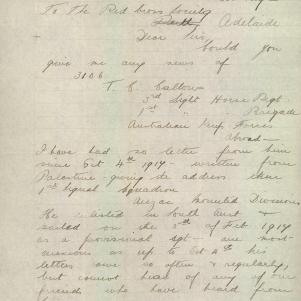 To The Red Cross Society
Adelaide
Dear Sir,
Could you
give me any news of
3106
T. E. Callow
3rd Light Horse Regt
1st " " Brigade
Australian Imp. Forces
Abroad —
I have had no letter from him
since Oct 4th 1917 - written from
Palestine - giving the address then
1st Signal Squadron
Anzac Mounted Divisions
He enlisted in South Aust &
sailed on the of Feb 1917
as a provisional sgt - and most
as up to Oct 4th his
letters were so often & regularly,
but cannot hear of any of our
friends who have heard from